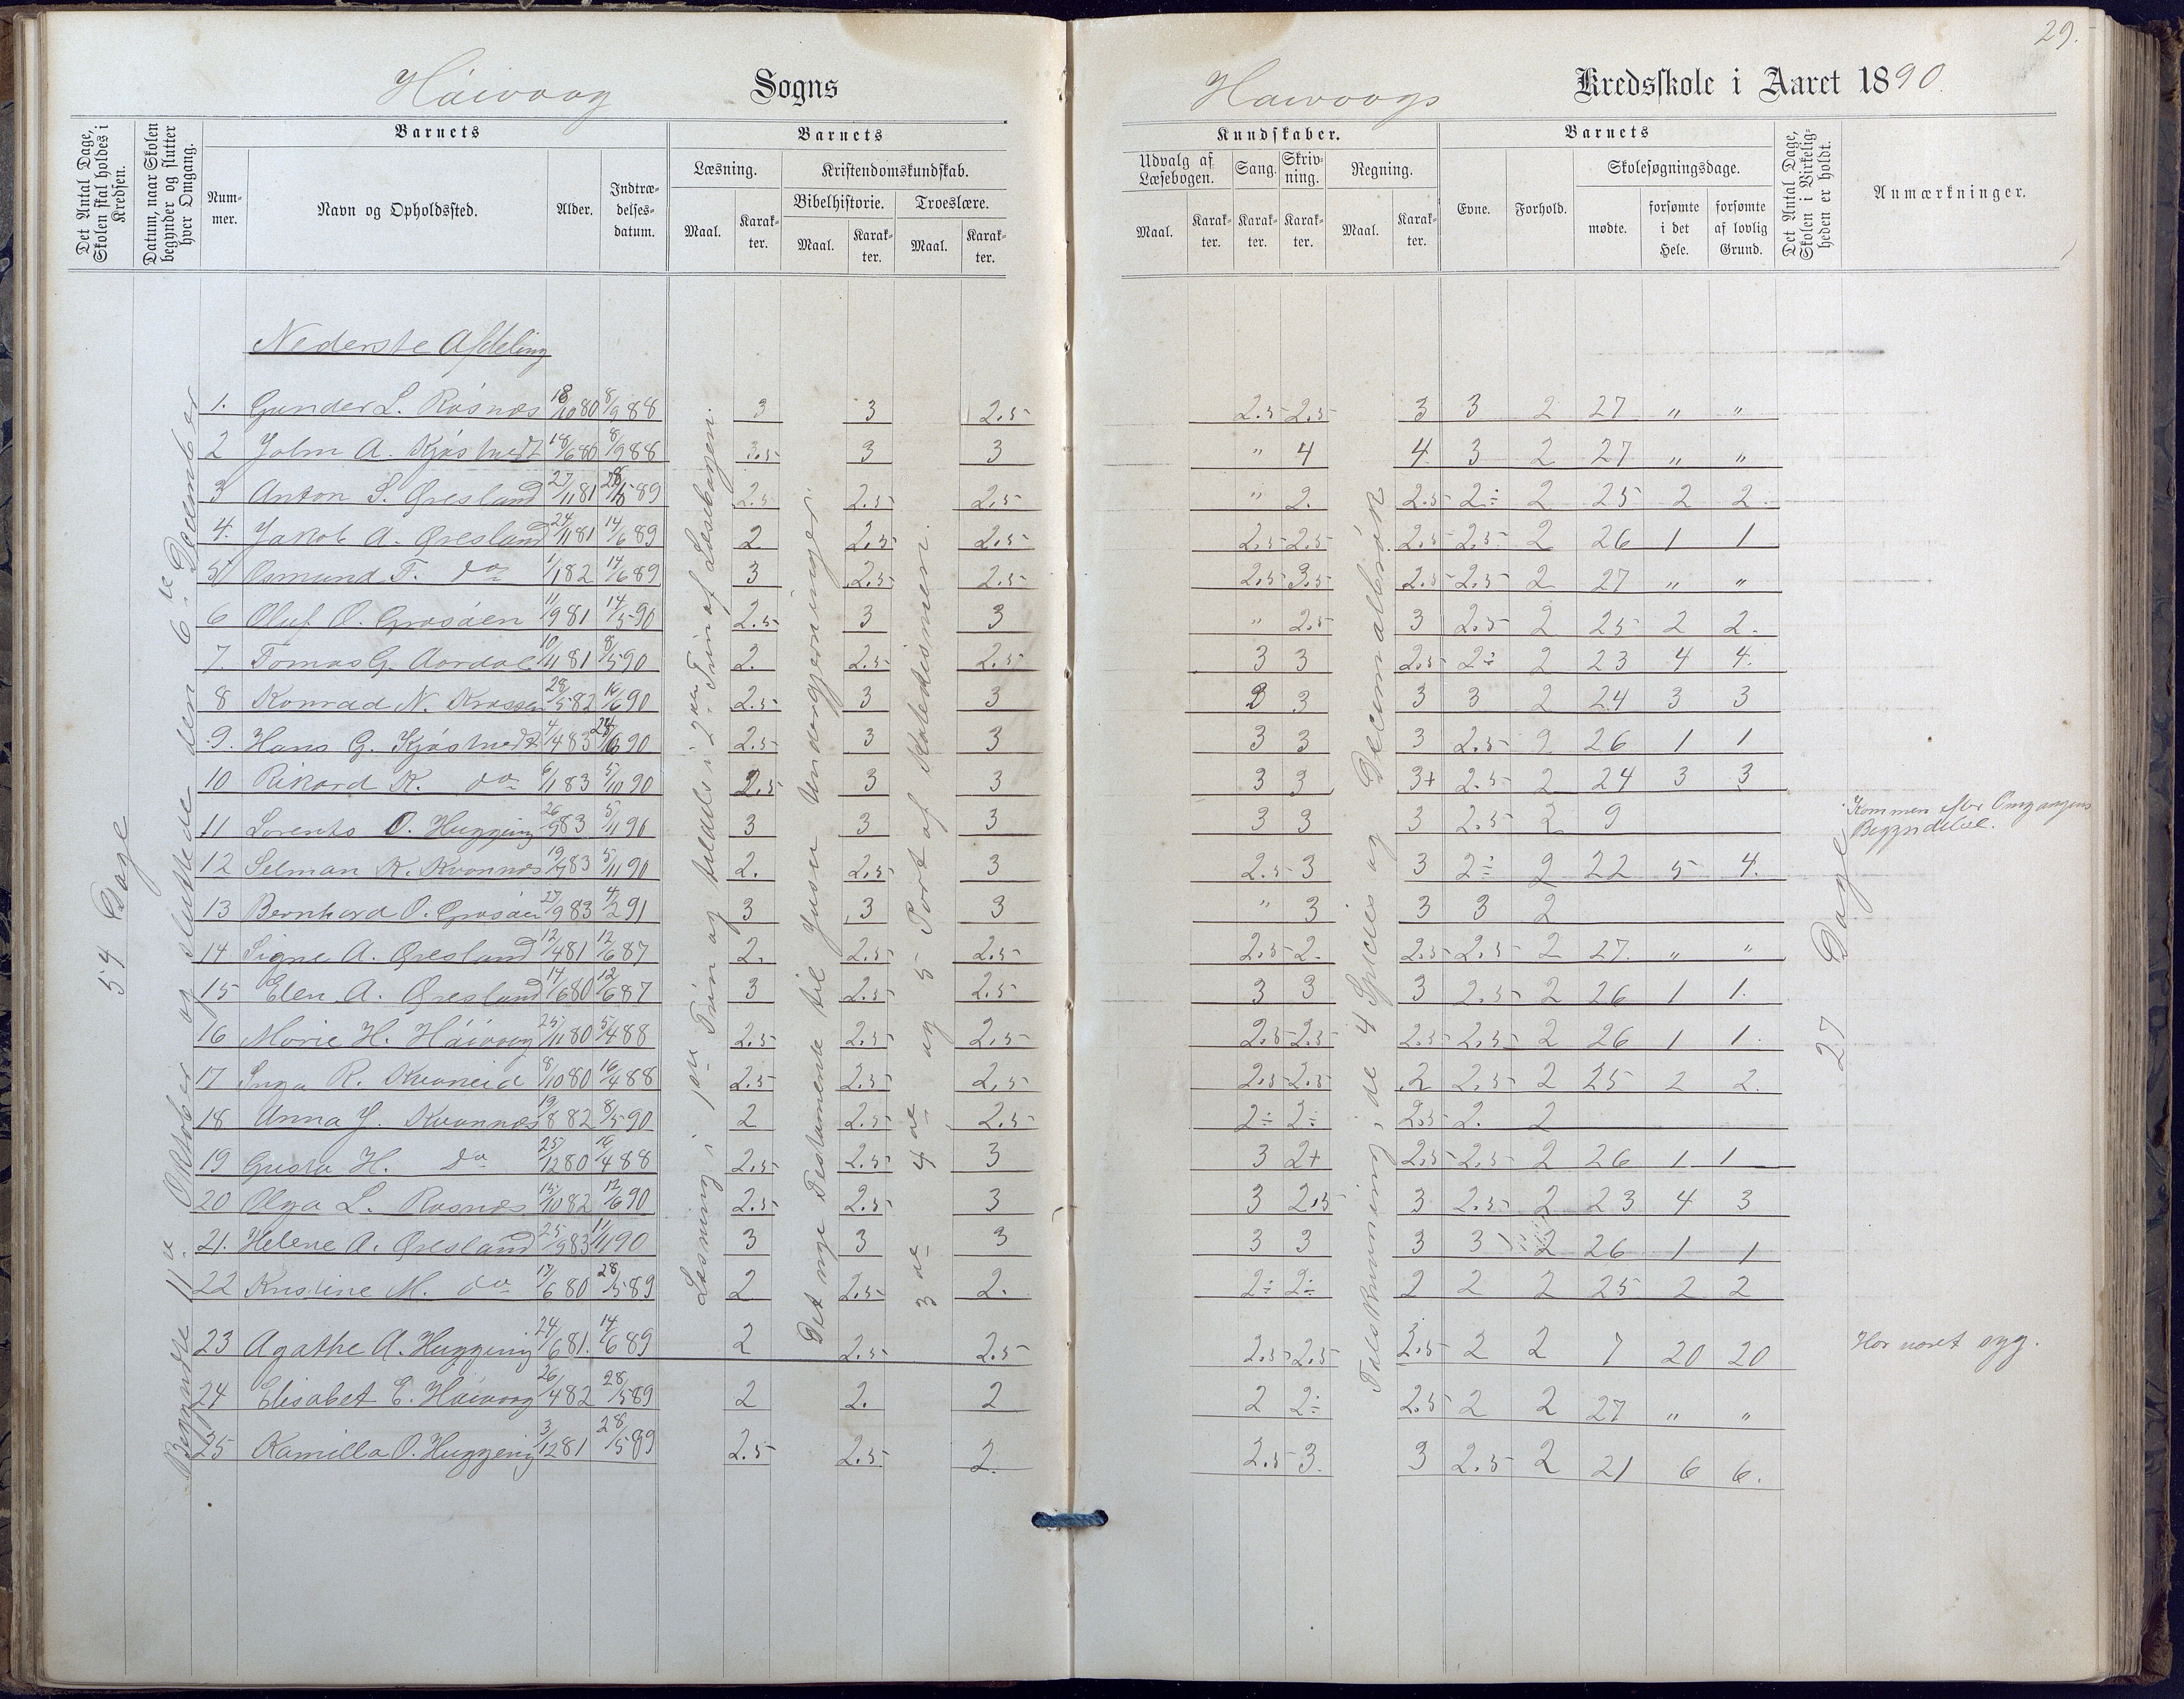 29.
Håivaag Sogns
Haivaags Kredsskole i Aaret 1890.
Det Antal Dage, Skolen skal holdes i Kredsen.
Datum, naar Skolen begynder og slutter hver Omgang.
Barnets
Nummer.
Navn og Opholdssted.
Alder.
Indtrædelses-datum.
Barnets
Læsning.
Maal.
Karakter.
Kristendomskundskab.
Bibelhistorie.
Maal.
Karakter.
Troeslære.
Maal.
Karakter.
Kundskaber.
Udvalg af Læsebogen.
Maal.
Karakter.
Sang.
Karakter.
Skrivning.
Karakter.
Regning.
Maal.
Karakter.
Barnets
Evne.
Forhold.
Skolesøgningsdage.
mødte.
forsømte i det Hele.
forsømte af lovlig Grund.
Det Antal Dage, Skolen i Virkeligheden er holdt.
Anmærkninger.
54 Dage
Begyndte 11te Oktober og sluttede den 6te December
Nederste Afdeling
Læsning i 1ste Trin og tildels i 2det Trin af Læsebogen.
Det nye Testamente til Jesu Undergjerninger.
3die 4de og 5 Part af Katekismen.
Talskrivning i de 4 Species og Decimalbrøk
27 Dage
1. Gunder L. Rosnes 18/10 80 8/9 88 3 3 2.5 2.5 2.5 3 3 2 27 " "
2 John A. Kjøstvedt 18/6 80 8/9 88 3.5 3 3 " 4 4 3 2 27 " "
3 Anton S. Øresland 27/11 81 28/5 89 2.5 2.5 2.5 " 2. 2.5 2÷ 2 25 2 2.
4. Jakob A. Øresland 24/11 81 14/6 89 2 2.5 2.5 2.5 2.5 2.5 2.5 2 26 1 1
5 Osmund T. do 1/1 82 14/6 89 3 2.5 2.5 2.5 3.5 2.5 2.5 2 27 " "
6 Oluf O. Grosåen 11/9 81 14/5 90 2.5 3 3 " 2.5 3 2.5 2 25 2 2.
7. Tomas G. Aardal 10/11 81 8/5 90 2. 2.5 2.5 3 3 2.5 2÷ 2 23 4 4.
8 Konrad N. Krossen 28/5 82 16/6 90 2.5 3 3 3 3 3 3 2 24 3 3
9. Hans G. Kjøstvedt 4/4 83 24/6 90 2.5 3 3 3 3 3 2.5 2 26 1 1
10 Rikard K. do 6/1 83 5/10 90 2.5 3 3 3 3 3+ 2.5 2 24 3 3
11 Lorents O. Huggeng 26/9 83 5/11 90 3 3 3 3 3 3 2.5 2 9 Kommen efter Omgangens Begyndelse.
12 Selman K. Kvannes 19/7 83 5/11 90 2. 2.5 3 2.5 3 3 2÷ 2 22 5 4.
13 Bernhard O. Grosåen 27/9 83 4/2 91 3 3 3 " 3 3 3 2
14 Signe A. Øresland 12/4 81 12/6 87 2. 2.5 2.5 2.5 2. 2.5 2.5 2 27. " "
15 Elen A. Øresland 14/6 80 12/6 87 3 2.5 2.5 3 3 3 2.5 2 26 1 1.
16 Marie H. Håivaag 25/11 80 5/4 88 2.5 2.5 2.5 2.5 2.5 2.5 2.5 2 26 1 1.
17 Inga R. Kvaneid 8/10 80 16/4 88 2.5 2.5 2.5 2.5 2.5 2 2.5 2 25 2 2.
18 Anna J. Kvannes 19/8 82 8/5 90 2 2.5 2.5 2÷ 2÷ 2.5 2. 2
19 Gusta H. do 25/12 80 16/4 88 2.5 2.5 3 3 2+ 2.5 2.5 2 26 1 1
20 Olga L. Rosnes 15/10 82 12/6 90 2.5 2.5 3 3 2.5 3 2.5 2 23 4 3
21. Helene A. Øresland 25/9 83 11/11 90 3 3 3 3 3 3 3 2 26 1 1
22 Kristine M. do 17/6 80 28/5 89 2 2.5 2. 2÷ 2÷ 2 2 2 25 2 2
23 Agathe A. Huggeng 24/6 81. 14/6 89 2 2.5 2.5 2.5 2.5 2.5 2 2 7 20 20 Har været syg.
24 Elisabet E. Håivaag 26/4 82 28/5 89 2 2. 2 2 2÷ 2.5 2 2 27 " "
25 Kamilla O. Huggeng 3/12 81 28/5 89 2.5 2.5 2. 2.5 3. 3 2.5 2 21 6 6.